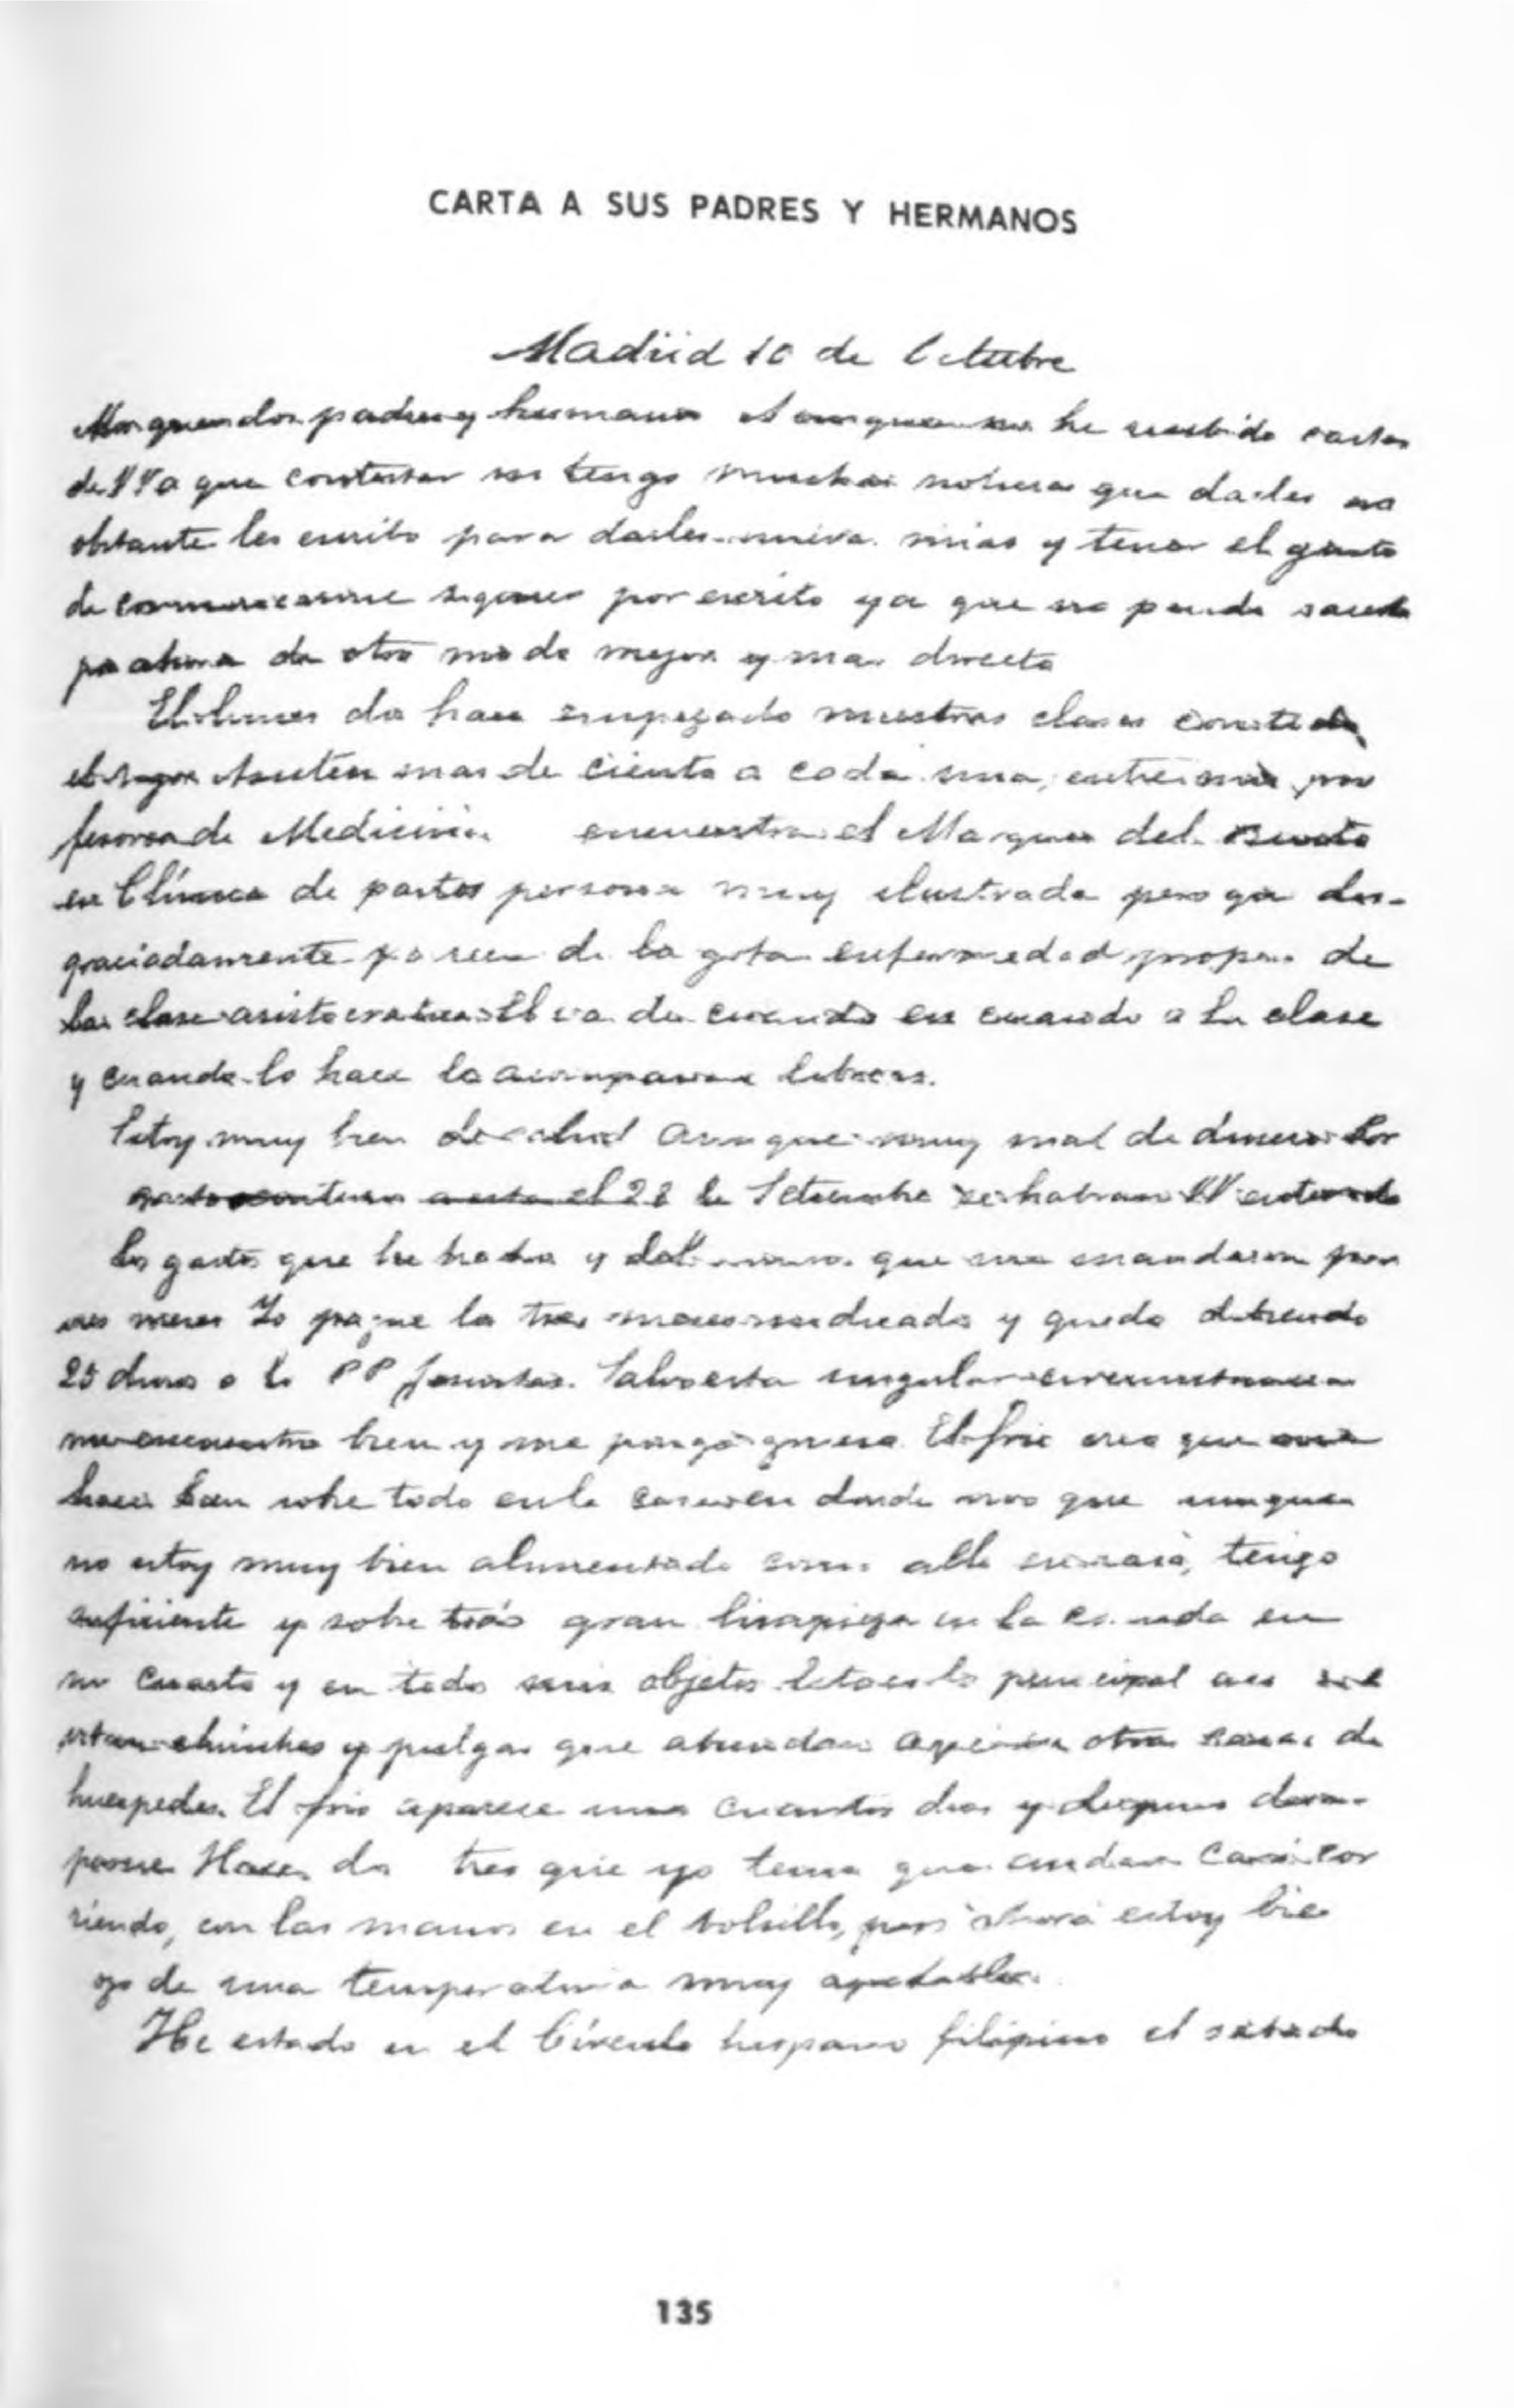 CARTA A SUS PADRES Y HERMANOS
Madrid 10 de Octubre
Mis queridos padres y hermanos Aunque no he recibido cartas
de VV a que contestar ni tengo muchas noticias que darles no
obstante les escribo para darles nuevas mias y tener el gusto
de comunicarme siquiera por escrito ya que no puede
por ahora de otro modo mejor y mas directo
El lunes dia han empezado nuestras clases
Asisten mas de ciento a cada una, entre mis pro
fesores de Medicina encuentra el Marques del Busto
en Clínica de partos persona muy ilustrada pero que des-
graciadamente padece de la gota enfermedad propia de
la clase aristocratica El va de cuando en cuando a la clase
y cuando lo hace lo acompañan
Estoy muy bien de salud aunque muy mal de dinero Por
el 28 de Setiembre se habran VV enterado
los gastos que he hecho y del que me mandaron por
meses Yo pague los tres meses indicados y quedo debiendo
25 duros a los PP Jesuitas. Salvo esta singular circunstancia
me encuentro bien y me pongo grueso El frio creo que me
hace bien sobre todo en la casa en donde vivo que aunque
no estoy muy bien alimentado como alla en casa, tengo
suficiente y sobre todo gran limpieza en la comida en
mi cuarto y en todos mis objetos Esto es lo principal
chinches y pulgas que abundan aqui en otras casas de
huespedes. El frio aparece unos cuantos dias y despues desa-
parece Hace dos tres que yo tenia que andar casi cor
riendo, con las manos en el bolsillo, pero ahora estoy bien
gozo de una temperatura muy agradable.
He estado en el Círculo hispano filipino el sabado
135